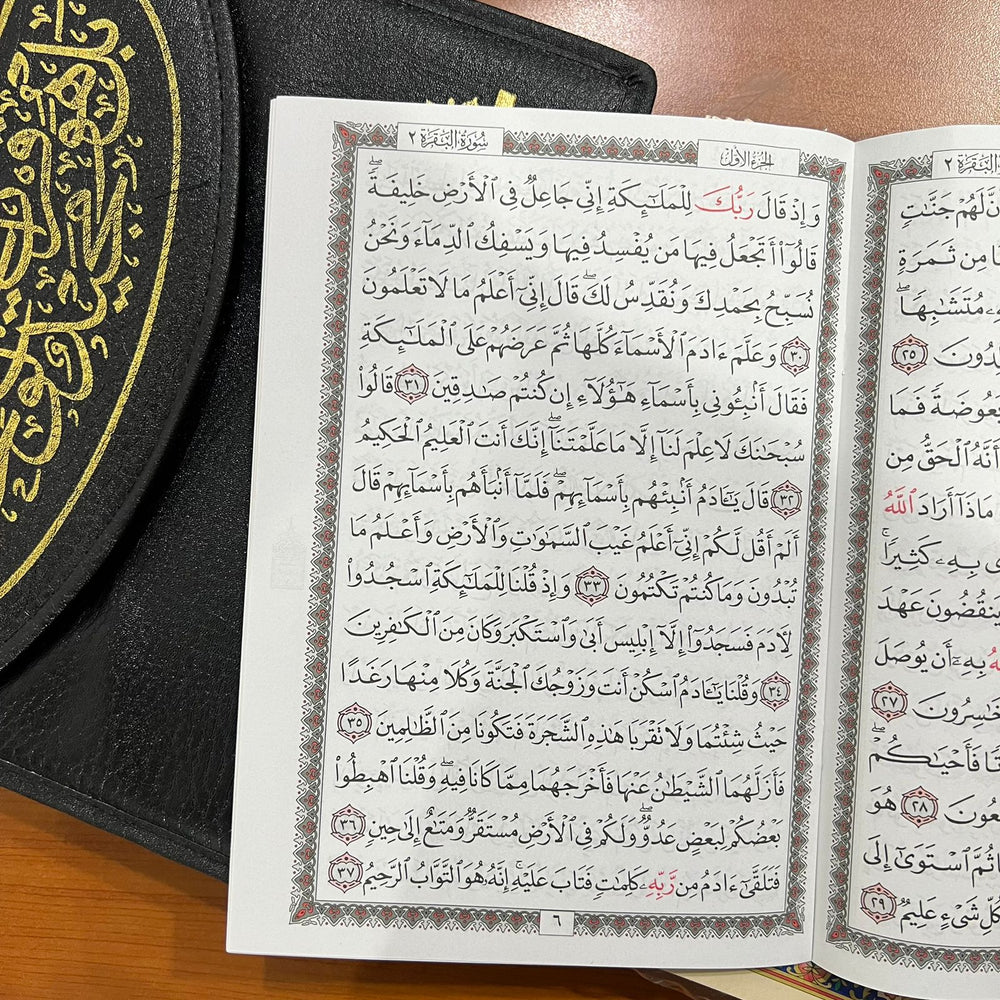 سُورَةُ الْبَقَرَةِ ٢
الجُزءُ الأوّل
وَإِذْ قَالَ رَبُّكَ لِلْمَلَٰٓئِكَةِ إِنِّى جَاعِلٌ فِى ٱلْأَرْضِ خَلِيفَةً ۖ
قَالُوٓا۟ أَتَجْعَلُ فِيهَا مَن يُفْسِدُ فِيهَا وَيَسْفِكُ ٱلدِّمَآءَ وَنَحْنُ
نُسَبِّحُ بِحَمْدِكَ وَنُقَدِّسُ لَكَ ۖ قَالَ إِنِّىٓ أَعْلَمُ مَا لَا تَعْلَمُونَ
٣٠ وَعَلَّمَ ءَادَمَ ٱلْأَسْمَآءَ كُلَّهَا ثُمَّ عَرَضَهُمْ عَلَى ٱلْمَلَٰٓئِكَةِ
فَقَالَ أَنۢبِـُٔونِى بِأَسْمَآءِ هَٰٓؤُلَآءِ إِن كُنتُمْ صَٰدِقِينَ ٣١ قَالُوا۟
سُبْحَٰنَكَ لَا عِلْمَ لَنَآ إِلَّا مَا عَلَّمْتَنَآ ۖ إِنَّكَ أَنتَ ٱلْعَلِيمُ ٱلْحَكِيمُ
٣٢ قَالَ يَٰٓـَٔادَمُ أَنۢبِئْهُم بِأَسْمَآئِهِمْ ۖ فَلَمَّآ أَنۢبَأَهُم بِأَسْمَآئِهِمْ قَالَ
أَلَمْ أَقُل لَّكُمْ إِنِّىٓ أَعْلَمُ غَيْبَ ٱلسَّمَٰوَٰتِ وَٱلْأَرْضِ وَأَعْلَمُ مَا
تُبْدُونَ وَمَا كُنتُمْ تَكْتُمُونَ ٣٣ وَإِذْ قُلْنَا لِلْمَلَٰٓئِكَةِ ٱسْجُدُوا۟
لِـَٔادَمَ فَسَجَدُوٓا۟ إِلَّآ إِبْلِيسَ أَبَىٰ وَٱسْتَكْبَرَ وَكَانَ مِنَ ٱلْكَٰفِرِينَ
٣٤ وَقُلْنَا يَٰٓـَٔادَمُ ٱسْكُنْ أَنتَ وَزَوْجُكَ ٱلْجَنَّةَ وَكُلَا مِنْهَا رَغَدًا
حَيْثُ شِئْتُمَا وَلَا تَقْرَبَا هَٰذِهِ ٱلشَّجَرَةَ فَتَكُونَا مِنَ ٱلظَّٰلِمِينَ ٣٥
فَأَزَلَّهُمَا ٱلشَّيْطَٰنُ عَنْهَا فَأَخْرَجَهُمَا مِمَّا كَانَا فِيهِ ۖ وَقُلْنَا ٱهْبِطُوا۟
بَعْضُكُمْ لِبَعْضٍ عَدُوٌّ ۖ وَلَكُمْ فِى ٱلْأَرْضِ مُسْتَقَرٌّ وَمَتَٰعٌ إِلَىٰ حِينٍ ٣٦
فَتَلَقَّىٰٓ ءَادَمُ مِن رَّبِّهِۦ كَلِمَٰتٍ فَتَابَ عَلَيْهِ ۚ إِنَّهُۥ هُوَ ٱلتَّوَّابُ ٱلرَّحِيمُ ٣٧
٦
الْبَقَرَةِ ٢
لَهُمْ جَنَّٰتٍ
مِن ثَمَرَةٍ
مُتَشَٰبِهًا ۖ
٢٥
بَعُوضَةً فَمَا
أَنَّهُ ٱلْحَقُّ مِن
مَاذَآ أَرَادَ ٱللَّهُ
بِهِۦ كَثِيرًا ۚ
يَنقُضُونَ عَهْدَ
بِهِۦٓ أَن يُوصَلَ
ٱلْخَٰسِرُونَ ٢٧
فَأَحْيَٰكُمْ ۖ
٢٨ هُوَ
ثُمَّ ٱسْتَوَىٰٓ إِلَى
شَىْءٍ عَلِيمٌ ٢٩